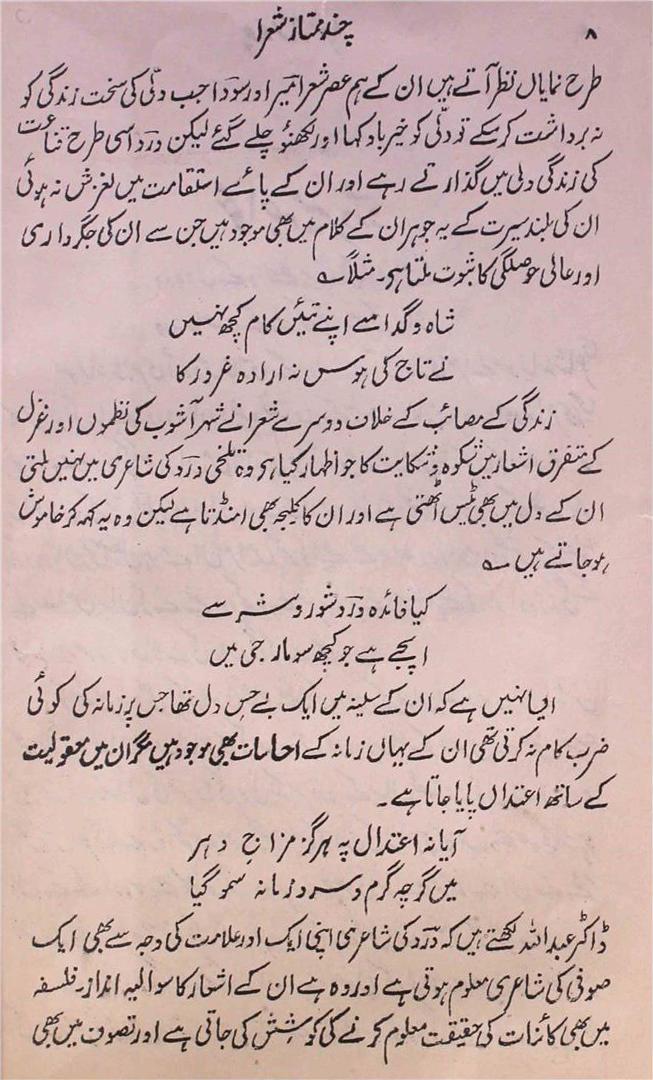 ۸
چند ممتاز شعرا
طرح نمایاں نظر آتے ہیں ان کے ہم عصر شعرا میر اور سودا جب دلّی کی سخت زندگی کو
نہ برداشت کر سکے تو دلّی کو خیرباد کہا اور لکھنؤ چلے گئے لیکن درد اسی طرح قناعت
کی زندگی دلی میں گذارتے رہے اور ان کے پائے استقامت میں لغزش نہ ہوئی
ان کی بلند سیرت کے یہ جوہر ان کے کلام میں بھی موجود ہیں جن سے ان کی جگر داری
اور عالی حوصلگی کا ثبوت ملتا ہی۔ مثلاً ؎
شاہ و گدا سے اپنے تئیں کام کچھ نہیں
نے تاج کی ہوس نہ ارادہ غرور کا
زندگی کے مصائب کے خلاف دوسرے شعرا نے شہر آشوب کی نظموں اور غزل
کے متفرق اشعار میں شکوہ و شکایت کا جو اظہار کیا ہی وہ تلخی درد کی شاعری میں نہیں ملتی
ان کے دل میں بھی ٹیس اٹھتی ہے اور ان کا کلیجہ بھی امنڈتا ہے لیکن وہ یہ کہہ کر خاموش
ہو جاتے ہیں ؎
کیا فائدہ درد شور و شر سے
اپجے ہے جو کچھ سو مار جی میں
ایسا نہیں ہے کہ ان کے سینہ میں ایک بے حس دل تھا جس پر زمانہ کی کوئی
ضرب کام نہ کرتی تھی ان کے یہاں زمانہ کے احساسات بھی موجود ہیں مگر ان میں معقولیت
کے ساتھ اعتدال پایا جاتا ہے۔
آیا نہ اعتدال پہ ہرگز مزاج دہر
میں گرچہ گرم و سرد زمانہ سمو گیا
ڈاکٹر عبداللہ لکھتے ہیں کہ درد کی شاعری اپنی ایک اور علامت کی وجہ سے بھی ایک
صوفی کی شاعری معلوم ہوتی ہے اور وہ ہے ان کے اشعار کا سوالیہ انداز۔ فلسفہ
میں بھی کائنات کی حقیقت معلوم کرنے کی کوشش کی جاتی ہے اور تصوف میں بھی